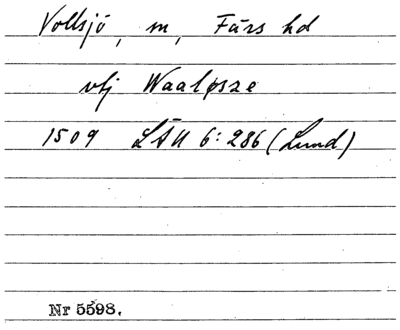 Vollsjö, m, Färs hd
vlj Waaløsze
1509 LÄU 6:286 (Lund)
Nr 5598.